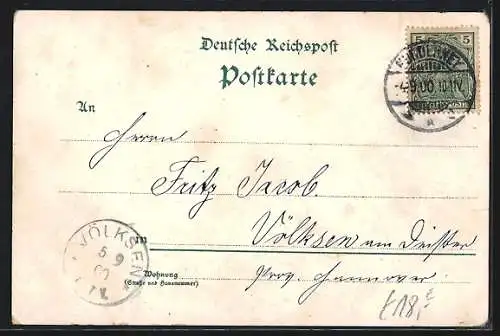 Deutsche Reichspost
Postkarte
5 5
NORDERNEY
4.9.00 10-11V.
An
Herrn
Fritz Jacob.
Völksen am Deister
in
VÖLKSEN
5
9
Wohnung
(Straße und Hausnummer)
Prov. Hannover
£18,